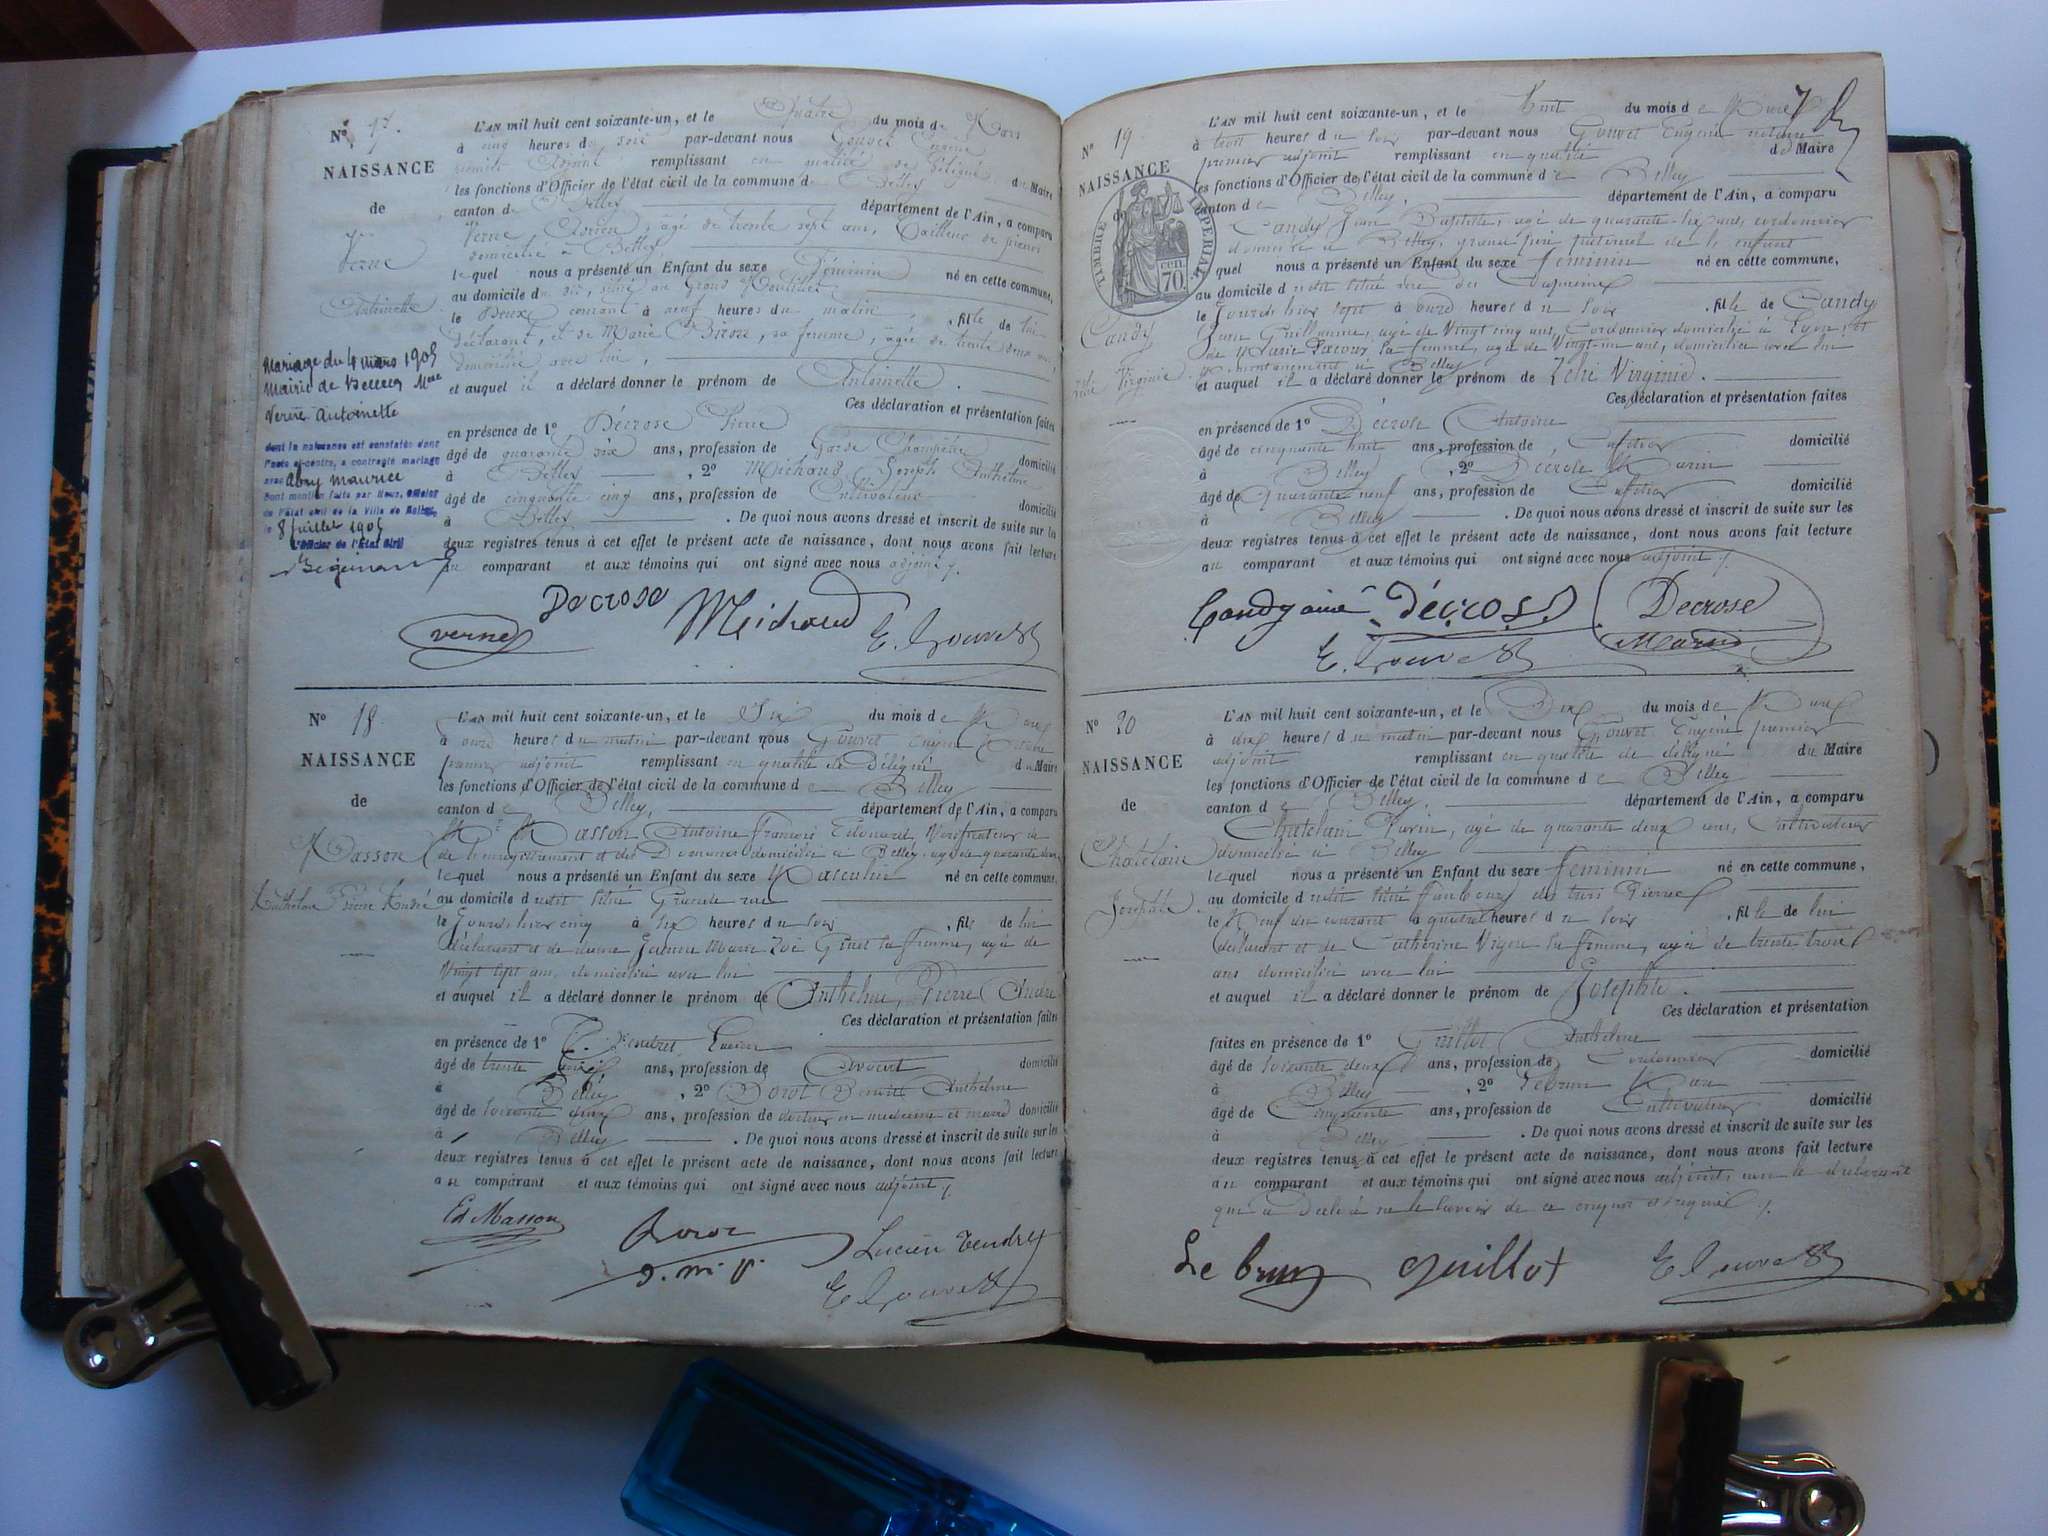 N° 17.
NAISSANCE
de
Verne
Antoinette
Mariage du 4 mars 1905
Mairie de
Verne Antoinette
dont la naissance est constatée dans
l'acte ci-contre, a contracté mariage
avec Abry Maurice
Dont mention faite par Nous, Officier
de l'état civil de la Ville de Belley,
le 8 juillet 1905
L'Officier de l'Etat Civil
L'AN mil huit cent soixante-un, et le Quatre du mois de Mars
à cinq heures du soir par-devant nous Gouvet Eugène
premier adjoint remplissant en qualité de Délégué du Maire
les fonctions d'Officier de l'état civil de la commune de Belley
canton de Belley département de l'Ain, a comparu
Verne, âgé de trente sept ans, Tailleur de pierres
domicilié à Belley
lequel nous a présenté un Enfant du sexe Féminin né en cette commune,
au domicile du dit, situé au
le Deux courant à neuf heures du matin, fille de lui
déclarant, et de Marie sa femme, âgée de trente deux ans,
domiciliée avec lui,
et auquel il a déclaré donner le prénom de Antoinette.
Ces déclaration et présentation faites
en présence de 1° Décrose Pierre
âgé de quarante six ans, profession de Garde Champêtre domicilié
à Belley, 2° Michaud Joseph Anthelme
âgé de cinquante cinq ans, profession de Cultivateur domicilié
à Belley. De quoi nous avons dressé et inscrit de suite sur les
deux registres tenus à cet effet le présent acte de naissance, dont nous avons fait lecture
au comparant et aux témoins qui ont signé avec nous adjoint /.
verne Decrose Michaud E. Gouvet
N° 18
NAISSANCE
de
Masson
Anthelme Pierre André
L'AN mil huit cent soixante-un, et le Six du mois de Mars
à onze heures du matin par-devant nous Gouvet Eugène Notaire
premier adjoint remplissant en qualité de Délégué du Maire
les fonctions d'Officier de l'état civil de la commune de Belley
canton de Belley, département de l'Ain, a comparu
Mr Masson Antoine François Edouard, Vérificateur de
de l'enregistrement et des Domaines domicilié à Belley, âgé de quarante deux ans,
lequel nous a présenté un Enfant du sexe Masculin né en cette commune,
au domicile du dit situé Grande rue
le Jourd'hier cinq à six heures du soir, fils de lui
déclarant et de dame Jeanne Marie Zoé Ginet sa femme, âgée de
Vingt sept ans, domiciliée avec lui
et auquel il a déclaré donner le prénom de Anthelme, Pierre André
Ces déclaration et présentation faites
en présence de 1° Tendret Lucien
âgé de trente ans, profession de Avocat domicilié
à Belley, 2° Dorot Benoit Anthelme
âgé de soixante deux ans, profession de docteur en médecine et maire domicilié
à Belley. De quoi nous avons dressé et inscrit de suite sur les
deux registres tenus à cet effet le présent acte de naissance, dont nous avons fait lecture
au comparant et aux témoins qui ont signé avec nous adjoint /.
Ed Masson Dorot Lucien Tendret
d. m. p. E. Gouvet
N° 19
NAISSANCE
de
TIMBRE IMPÉRIAL
70 cen.
Candy
Virginie
L'AN mil huit cent soixante-un, et le huit du mois de Mars
à trois heures du soir par-devant nous Gouvet Eugène notaire
premier adjoint remplissant en qualité de Maire
les fonctions d'Officier de l'état civil de la commune de Belley
canton de Belley, département de l'Ain, a comparu
Candy Jean Baptiste, âgé de quarante six ans, cordonnier
domicilié à Belley, grand père paternel de l'enfant
lequel nous a présenté un Enfant du sexe féminin né en cette commune,
au domicile du dit situé rue des
le Jourd'hier sept à onze heures du soir, fille de Candy
Jean Guillaume, âgé de Vingt cinq ans, Cordonnier domicilié à Lyon, et
de Marie sa femme, âgée de Vingt un ans, domiciliée avec lui
momentanément à Belley
et auquel il a déclaré donner le prénom de Zélie Virginie.
Ces déclaration et présentation faites
en présence de 1° Décrose Antoine
âgé de cinquante huit ans, profession de Cafetier domicilié
à Belley, 2° Décrose Marin
âgé de Quarante neuf ans, profession de Cafetier domicilié
à Belley. De quoi nous avons dressé et inscrit de suite sur les
deux registres tenus à cet effet le présent acte de naissance, dont nous avons fait lecture
au comparant et aux témoins qui ont signé avec nous adjoint /.
Candy ainé Décrose Decrose
E. Gouvet Marin
N° 20
NAISSANCE
de
Chatelain
Josephte
L'AN mil huit cent soixante-un, et le Dix du mois de Mars
à dix heures du matin par-devant nous Gouvet Eugène premier
adjoint remplissant en qualité de délégué du Maire
les fonctions d'Officier de l'état civil de la commune de Belley
canton de Belley, département de l'Ain, a comparu
Chatelain, âgé de quarante deux ans, Cultivateur
domicilié à Belley
lequel nous a présenté un Enfant du sexe féminin né en cette commune,
au domicile du dit situé faubourg des trois Pierres
le Neuf du courant à quatre heures du soir, fille de lui
déclarant et de Catherine sa femme, âgée de trente trois
ans domiciliée avec lui
et auquel il a déclaré donner le prénom de Josephte.
Ces déclaration et présentation
faites en présence de 1° Guillot Anthelme
âgé de soixante deux ans, profession de Cordonnier domicilié
à Belley, 2° Lebrun Marc
âgé de Cinquante ans, profession de Cultivateur domicilié
à Belley. De quoi nous avons dressé et inscrit de suite sur les
deux registres tenus à cet effet le présent acte de naissance, dont nous avons fait lecture
au comparant et aux témoins qui ont signé avec nous adjoint, non le déclarant
qui a déclaré ne le savoir de ce enquis et requis /.
Le brun guillot E. Gouvet